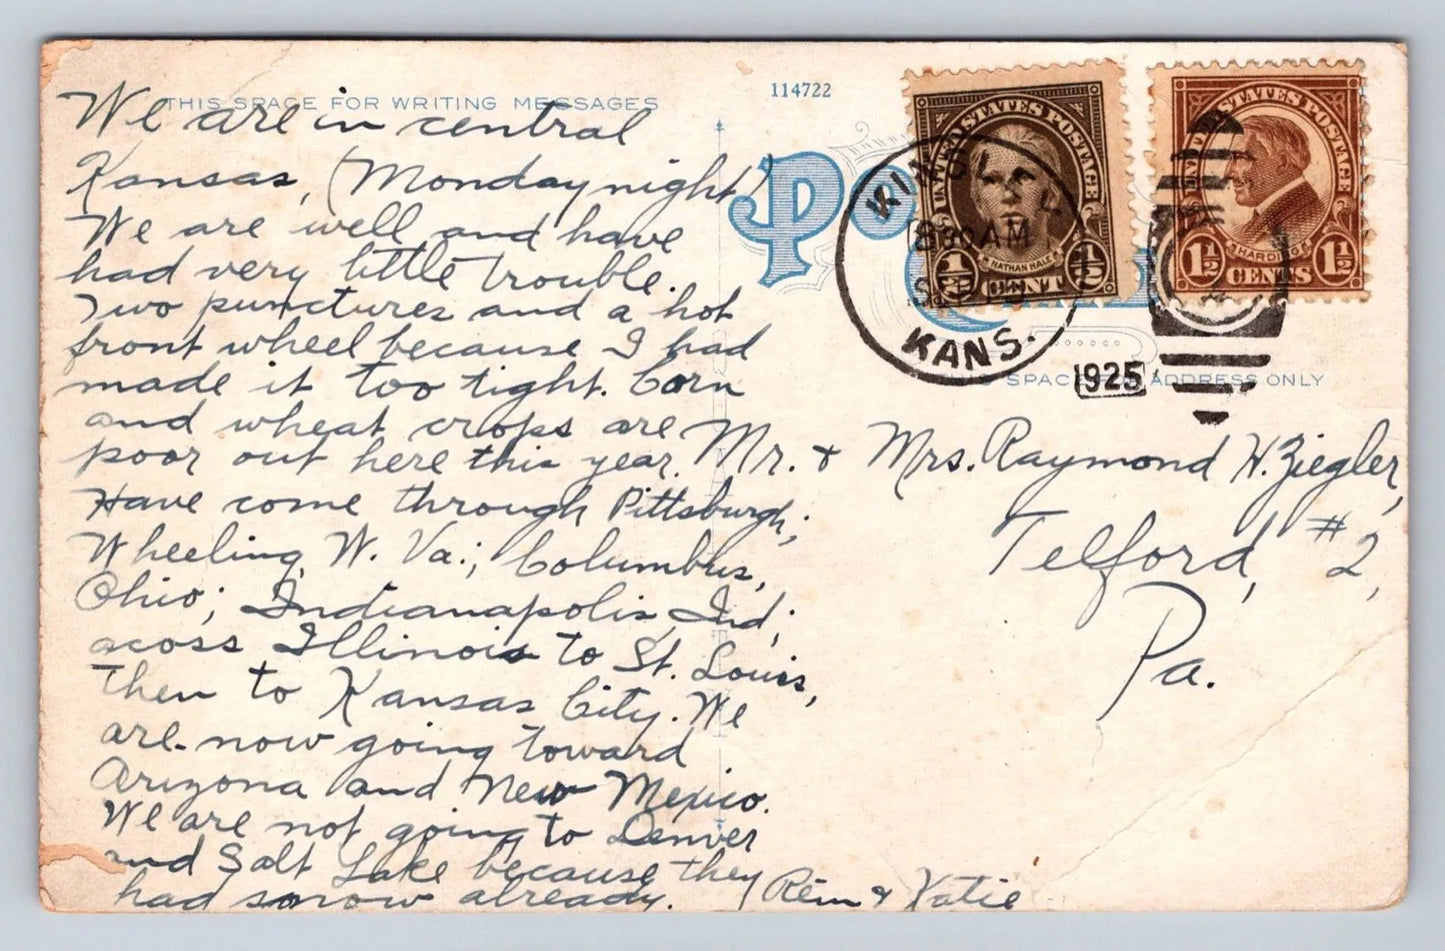 THIS SPACE FOR WRITING MESSAGES
114722
We are in central
Kansas, (Monday night)
We are well and have
had very little trouble.
Two punctures and a hot
front wheel because I had
made it too tight. Corn
and wheat crops are
poor out here this year.
Have come through Pittsburgh;
Wheeling, W. Va.; Columbus,
Ohio; Indianapolis, Ind;
acoss Illinois to St. Louis,
then to Kansas City. We
are now going toward
Arizona and New Mexico.
We are not going to Denver
and Salt Lake because they
had snow already.
Rein & Katie
UNITED STATES POSTAGE
NATHAN HALE
1/2 CENT 1/2
UNITED STATES POSTAGE
HARDING
1 1/2 CENTS 1 1/2
KINSL
8 30 AM
SEP
KANS.
1925
SPACE ADDRESS ONLY
Mr. & Mrs. Raymond H. Ziegler,
Telford, #2,
Pa.